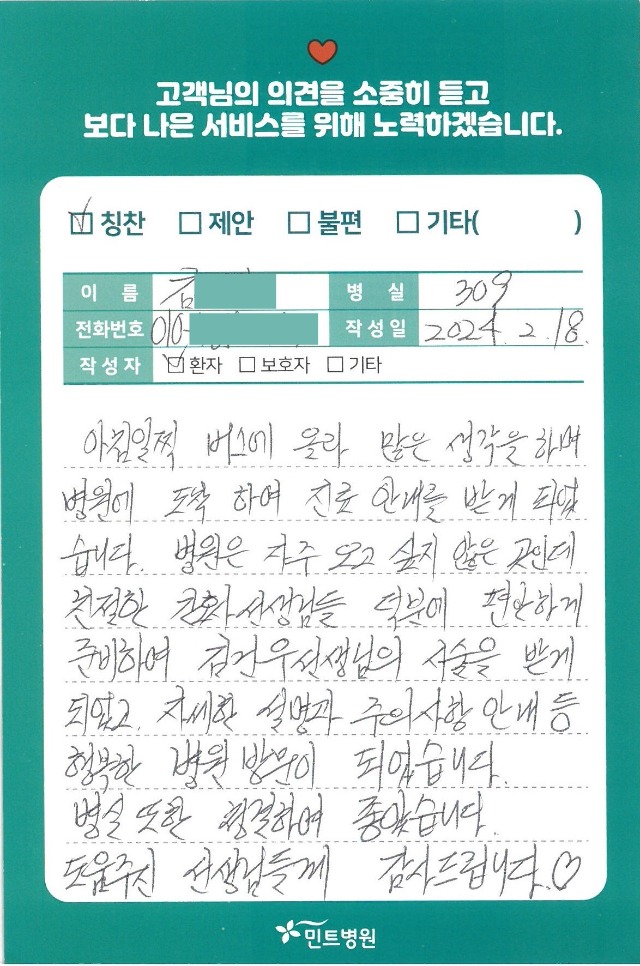 고객님의 의견을 소중히 듣고
보다 나은 서비스를 위해 노력하겠습니다.
칭찬 제안 불편 기타( )
이 름 금 병 실 309
전화번호 010- 작성일 2024. 2. 18.
작성자 환자 보호자 기타
아침일찍 버스에 올라 많은 생각을 하며
병원에 도착 하여 진료 안내를 받게 되었
습니다. 병원은 자주 오고 싶지 않은 곳인데
친절한 간호사선생님들 덕분에 편안하게
준비하여 김건우선생님의 시술을 받게
되었고, 자세한 설명과 주의사항 안내 등
행복한 병원 방문이 되었습니다.
병실 또한 청결하여 좋았습니다.
도움주신 선생님들께 감사드립니다.♡
민트병원